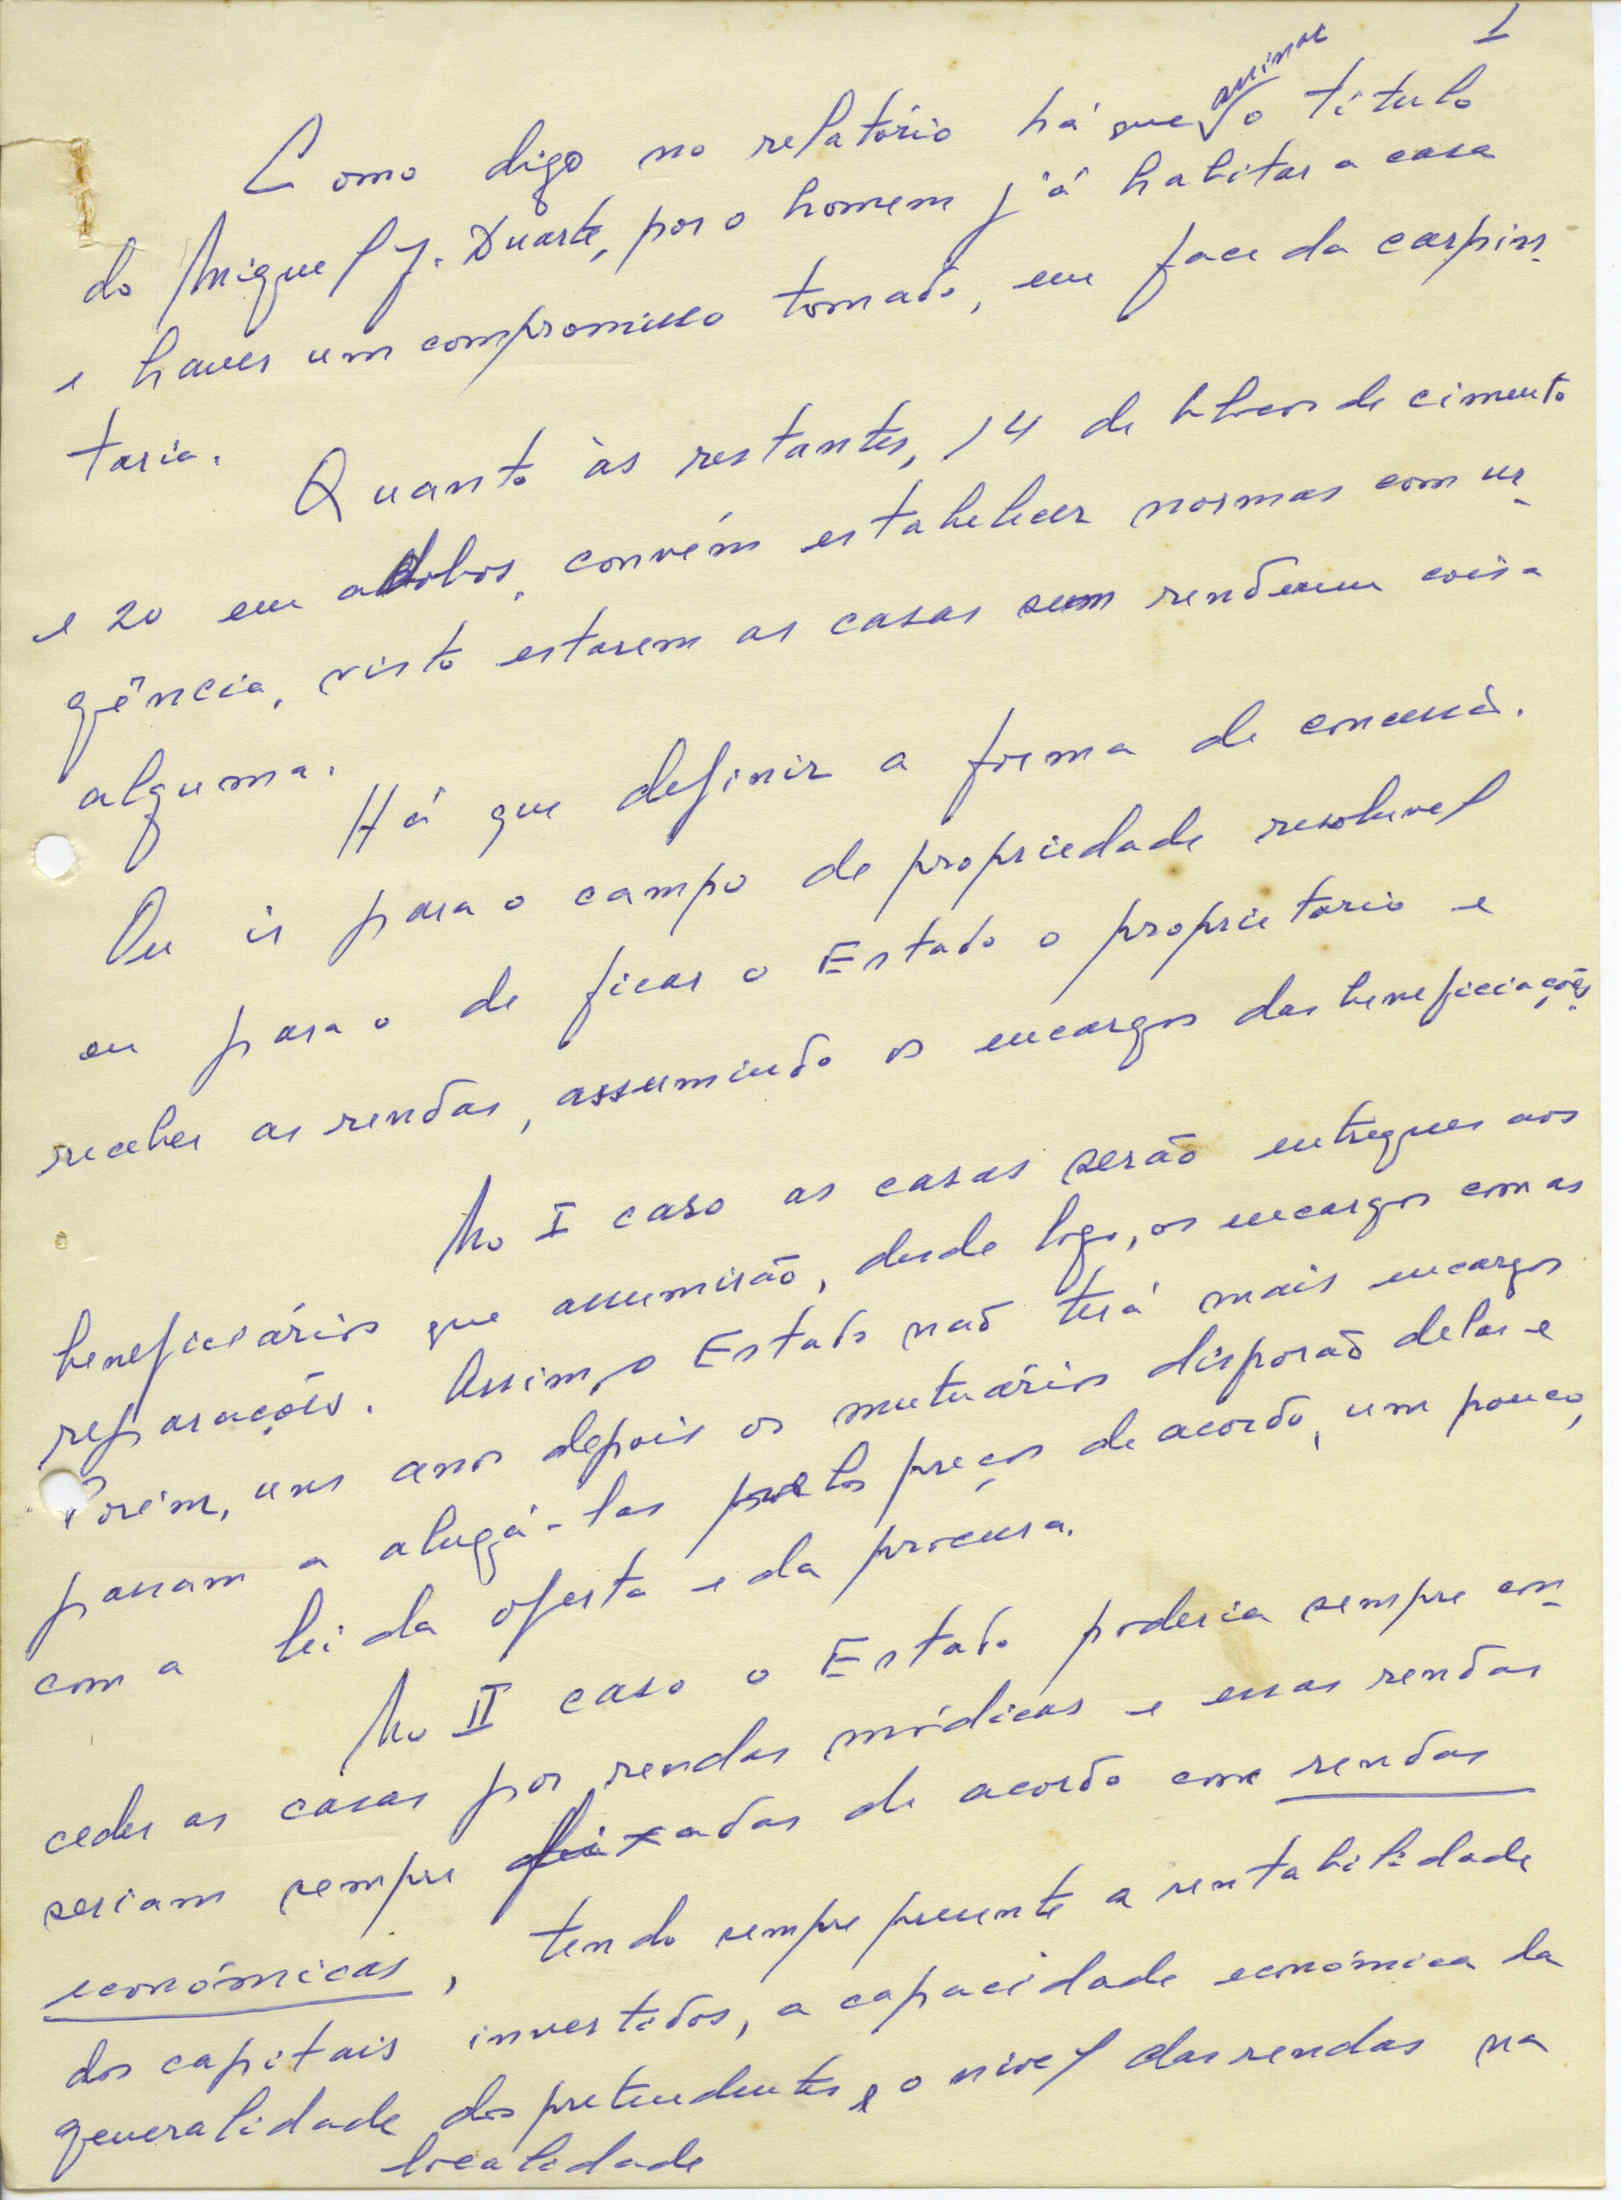 1
assinar
Como digo no relatório há que o título
do Miguel J. Duarte, por o homem já habitar a casa
e haver um compromisso tomado, em face da carpin-
taria.
Quanto às restantes, 14 de blocos de cimento
e 20 em adobos, convém estabelecer normas com ur-
gência, visto estarem as casas sem renderem coisa
alguma.
Há que definir a forma de concessão.
Ou ir para o campo de propriedade resoluvel
ou para o de ficar o Estado o proprietário e
receber as rendas, assumindo os encargos das beneficiações.
No I caso as casas serão entregues aos
beneficiários que assumirão, desde logo, os encargos com as
reparações. Assim, o Estado não terá mais encargos
Porém, uns anos depois os mutuários disporão delas e
passam a alugá-las pelos preços de acordo, um pouco,
com a lei da oferta e da procura.
No II caso o Estado poderia sempre con-
ceder as casas por rendas módicas e essas rendas
seriam sempre fixadas de acordo com rendas
económicas, tendo sempre presente a rentabilidade
dos capitais investidos, a capacidade económica da
generalidade dos pretendentes e o nível das rendas na
localidade